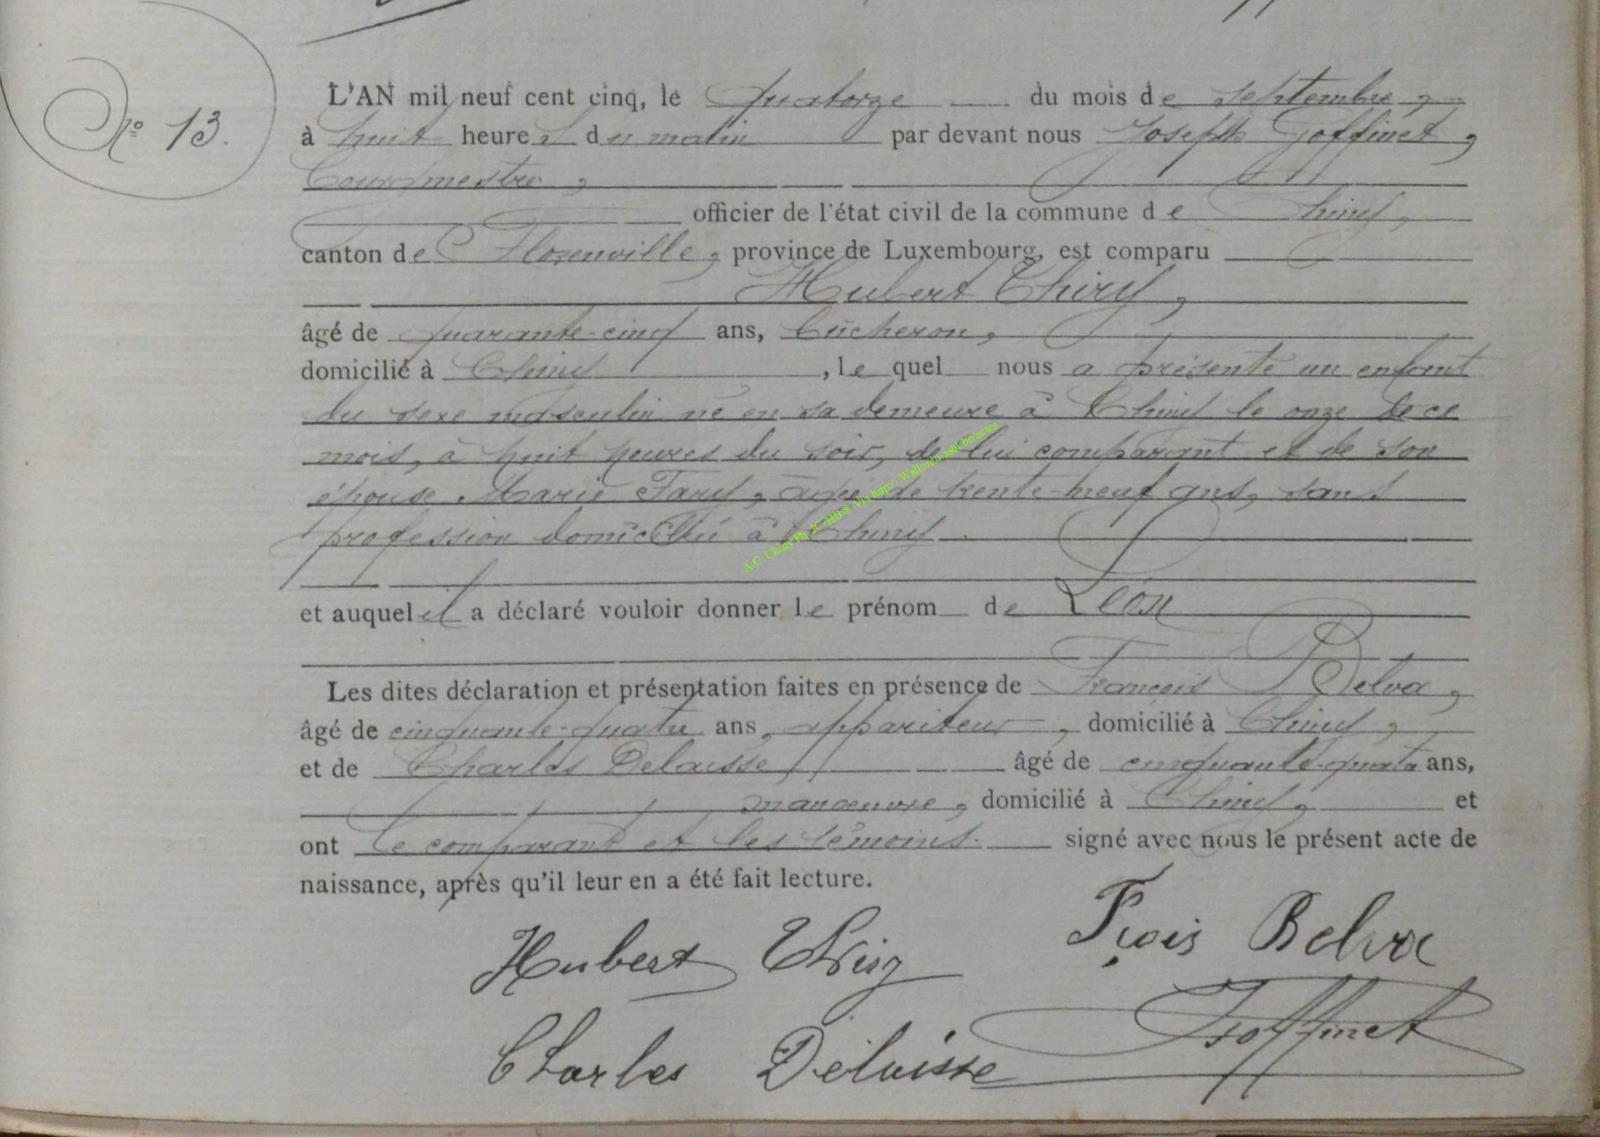 N° 13.
L'AN mil neuf cent cinq, le quatorze du mois de septembre,
à huit heures du matin par devant nous Joseph Goffinet,
Bourgmestre,
officier de l'état civil de la commune de Chiny,
canton de Florenville, province de Luxembourg, est comparu
Hubert Thiry,
âgé de quarante-cinq ans, bûcheron,
domicilié à Chiny, lequel nous a présenté un enfant
du sexe masculin né en sa demeure à Chiny le onze de ce
mois, à huit heures du soir, de lui comparant et de son
épouse Marie Fary, âgée de trente-neuf ans, sans
profession domiciliée à Chiny.
et auquel il a déclaré vouloir donner le prénom de Léon
Les dites déclaration et présentation faites en présence de François Belva,
âgé de cinquante-quatre ans, appariteur, domicilié à Chiny,
et de Charles Delaisse, âgé de cinquante-quatre ans,
manœuvre, domicilié à Chiny, et
ont le comparant et les témoins signé avec nous le présent acte de
naissance, après qu'il leur en a été fait lecture.
Hubert Thiry Fçois Belva
Charles Delaisse Goffinet